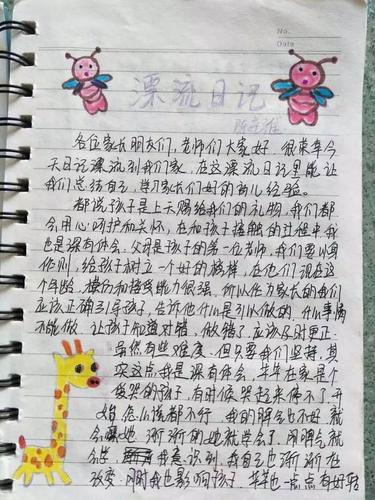 No.
Date
漂流日记
各位家长朋友们，老师们大家好 很荣幸今
天日记漂流到我们家，在这漂流日记里能让
我们总结自己，学习家长们好的育儿经验。
都说孩子是上天赐给我们的礼物，我们都
会用心呵护和关怀，在和孩子接触的过程中我
也是深有体会。父母是孩子的第一位老师，我们要以身
作则，给孩子树立一个好的榜样，在他们现在这
个年龄，模仿和接受能力很强，所以作为家长的我们
应该正确引导孩子，告诉他什么是可以做的，什么事情
不能做，让孩子知道对错，做错了，应该及时更正。
虽然有些难度，但只要我们坚持，其
实这点我是深有体会，在家是个
爱哭的孩子，有时候哭起来停不了，开
始怎么说都不行 我的脾气也不好 就
会 她 渐渐的她就学会了，用哪点就
会学 我意识到，我自己也渐渐在
改变，同时我也影响孩子， 也一点点有好转